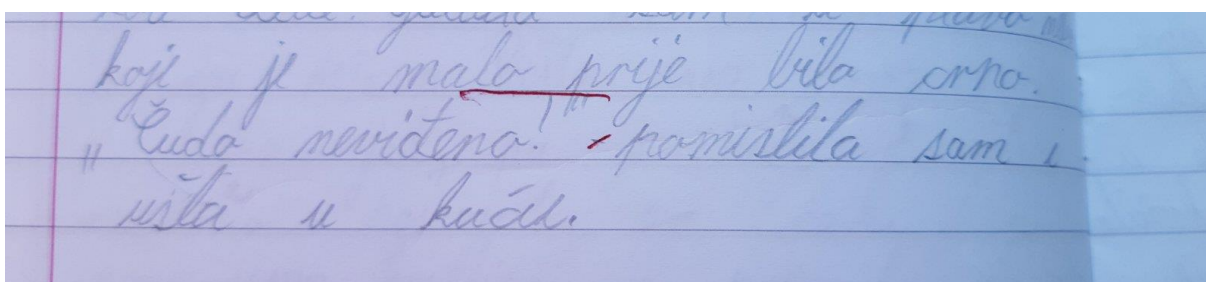 sam u
koje je malo prije bila crno.
„Čudo neviđeno!" - pomislila sam i
ušla u kuću.